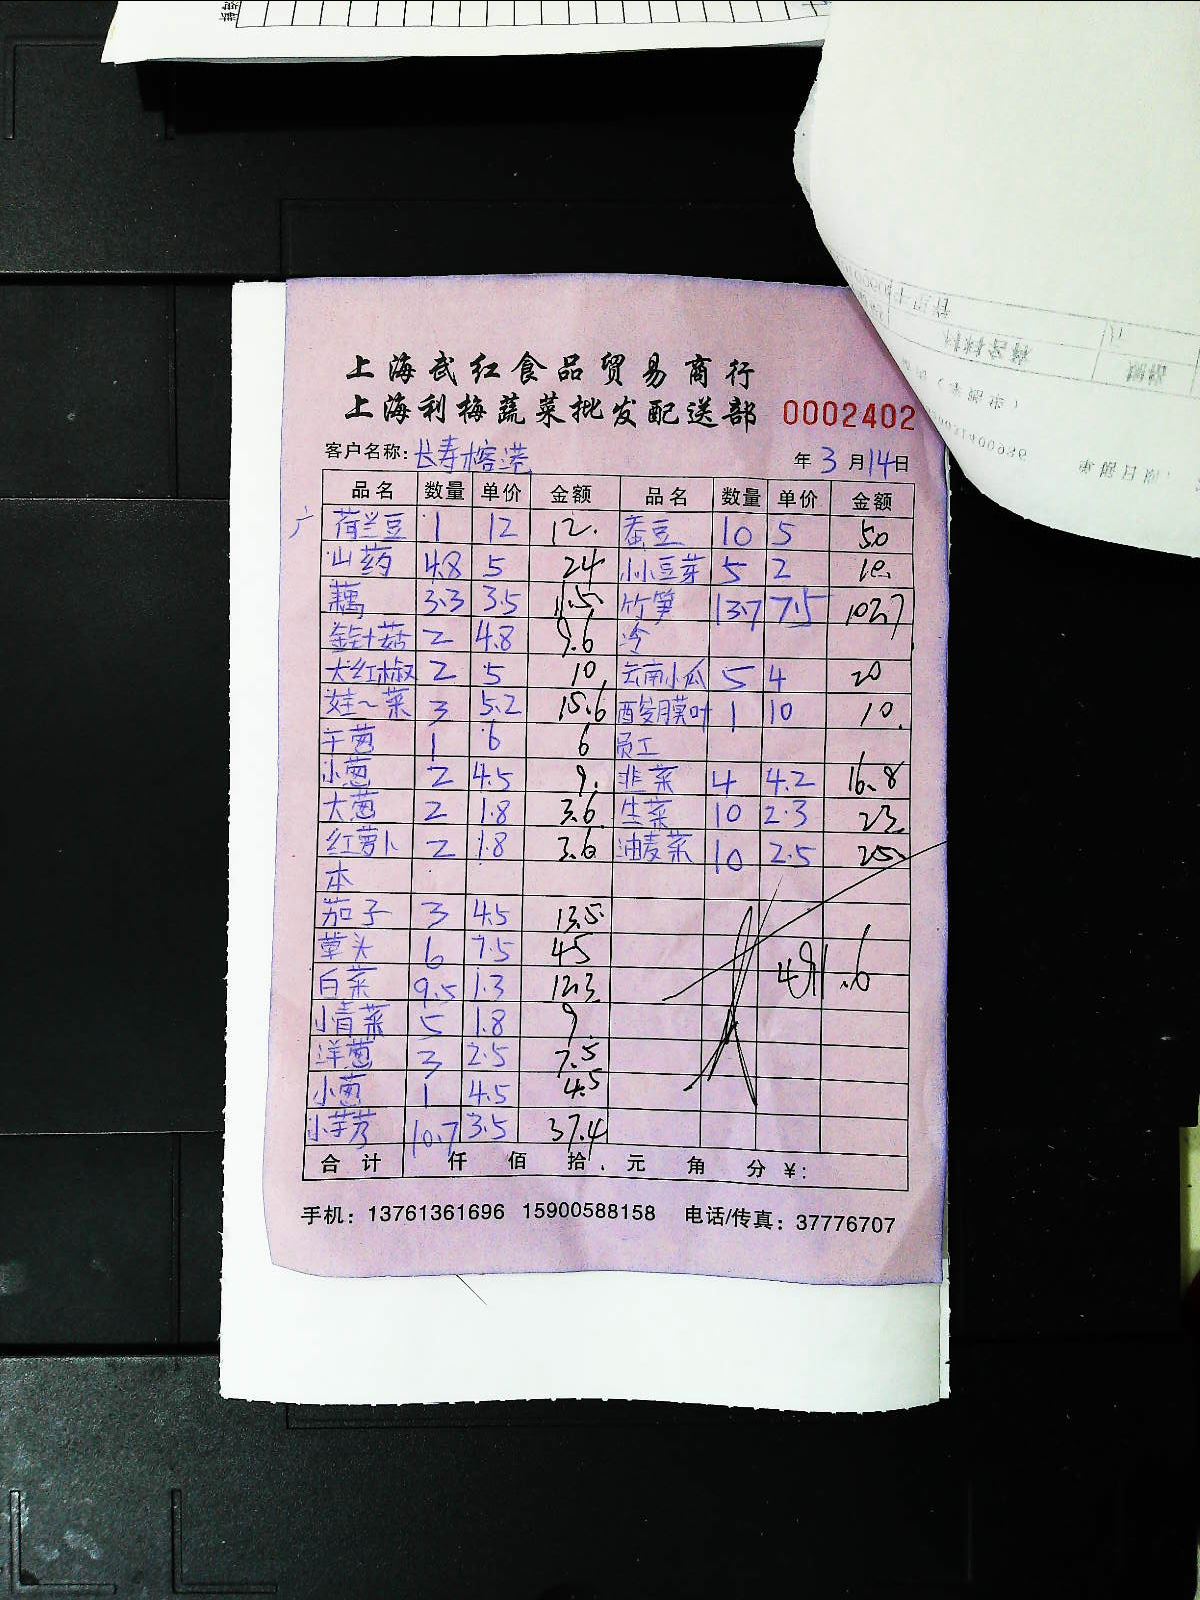 上海武红食品贸易商行
上海利梅蔬菜批发配送部 0002402
客户名称: 长寿榕港 年 3 月 14 日
品名 数量 单价 金额 品名 数量 单价 金额
广 荷兰豆 1 12 12. 蚕豆 10 5 50
山药 4.8 5 24 小小豆芽 5 2 10.
藕 3.3 3.5 11.5 竹笋 13.7 7.5 102.7
金针菇 2 4.8 9.6 冷
大红椒 2 5 10 云南小瓜 5 4 20
娃~菜 3 5.2 15.6 酸膜叶 1 10 10.
干葱 1 6 6 员工
小葱 2 4.5 9. 韭菜 4 4.2 16.8
大葱 2 1.8 3.6 生菜 10 2.3 23
红萝卜 2 1.8 3.6 油麦菜 10 2.5 25
本
茄子 3 4.5 13.5
草头 6 7.5 45
白菜 9.5 1.3 12.3 491.6
小青菜 5 1.8 9
洋葱 3 2.5 7.5
小葱 1 4.5 4.5
小芋艿 10.7 3.5 37.4
合计 仟 佰 拾 元 角 分 ¥:
手机: 13761361696 15900588158 电话/传真: 37776707